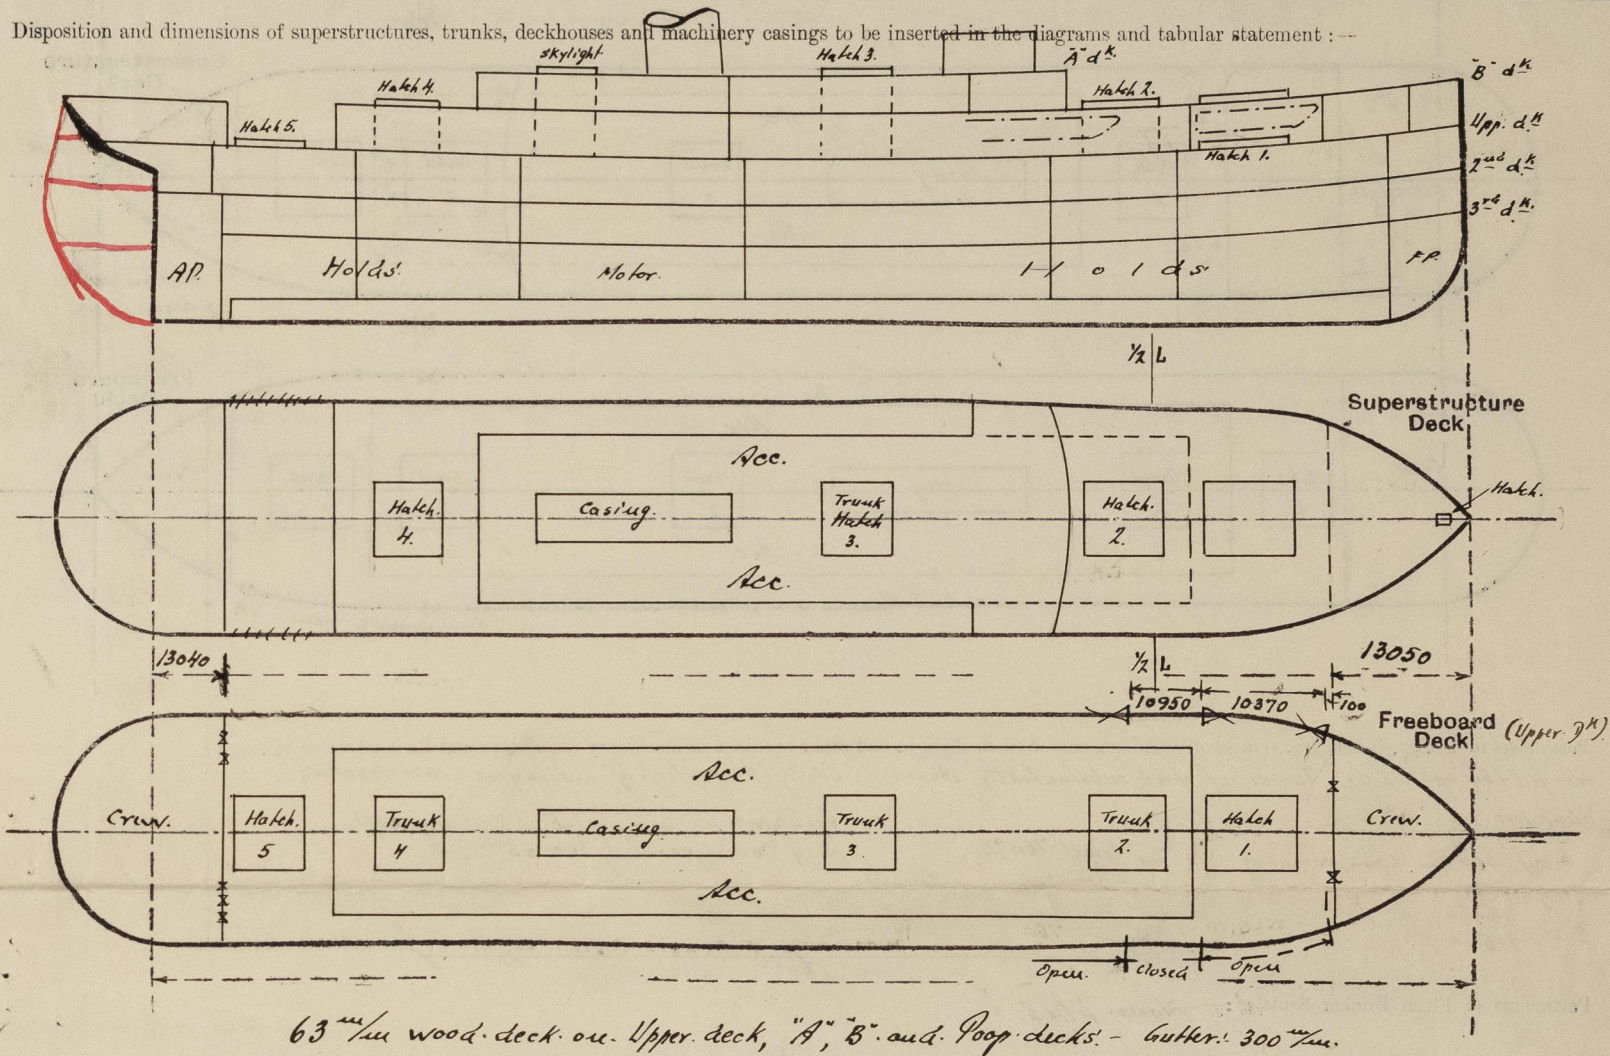 Disposition and dimensions of superstructures, trunks, deckhouses and machinery casings to be inserted in the diagrams and tabular statement :—
Skylight
Hatch 3.
"A" dk.
"B" dk
Hatch 4.
Hatch 2.
Hatch 5.
Upp. dk
Hatch 1.
2nd dk
3rd dk.
AP.
Holds.
Motor.
Holds
FP.
½ L
Superstructure
Deck
Acc.
Hatch.
Hatch.
4.
Casing.
Trunk
Hatch
3.
Hatch.
2.
Acc.
13040
½ L
13050
10950
10370
100
Freeboard
Deck
(Upper Dk)
Acc.
Crew.
Hatch.
5
Trunk
4
Casing
Trunk
3
Trunk
2.
Hatch
1.
Crew.
Acc.
Open.
Closed
Open
63 m/m wood deck on Upper deck, "A", "B" and Poop decks. – Gutter: 300 m/m.